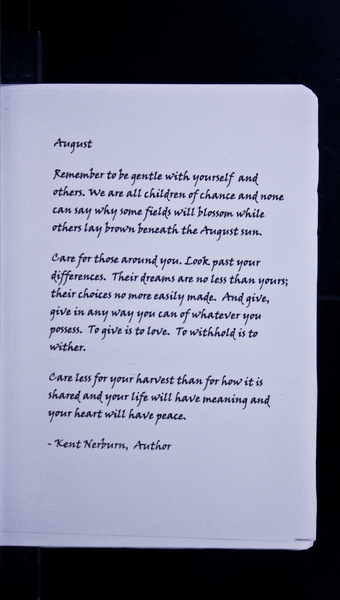 August
Remember to be gentle with yourself and
others. We are all children of chance and none
can say why some fields will blossom while
others lay brown beneath the August sun.
Care for those around you. Look past your
differences. Their dreams are no less than yours;
their choices no more easily made. And give,
give in any way you can of whatever you
possess. To give is to love. To withhold is to
wither.
Care less for your harvest than for how it is
shared and your life will have meaning and
your heart will have peace.
- Kent Nerburn, Author